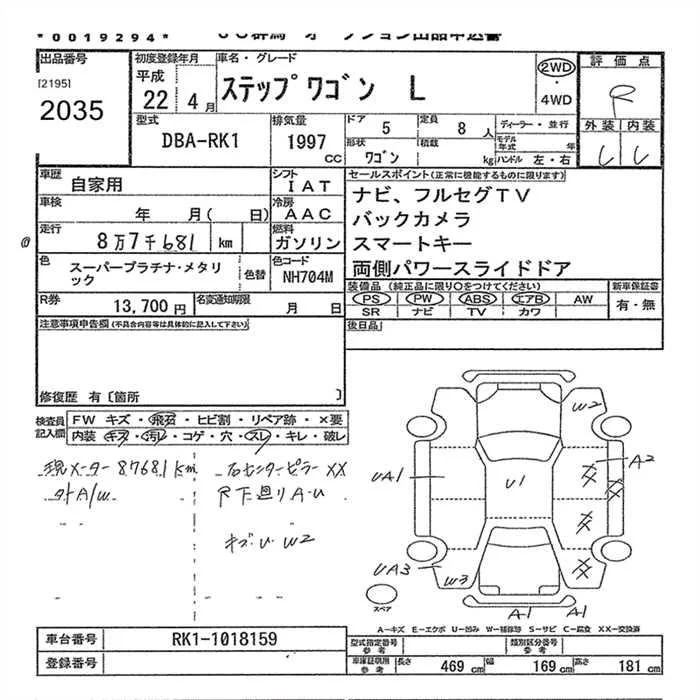 *0019294*
出品番号
[2195]
2035
初度登録年月
平成
22年 4月
車名・グレード
ステップワゴン L
2WD
・
4WD
評価点
R
外装 内装
型式
DBA-RK1
排気量
1997 CC
ドア 5
定員 8 人
形状 ワゴン
積載 kg
ディーラー・並行
モデル年式 年
ハンドル 左・右
車歴 自家用
シフト IAT
車検 年 月( 日)
冷房 AAC
走行 8万7千681 km
燃料 ガソリン
色 スーパープラチナ・メタリック
色替
色コード NH704M
R券 13,700円
名変通知期限 月 日
セールスポイント(正常に機能するものに限ります)
ナビ、フルセグTV
バックカメラ
スマートキー
両側パワースライドドア
装備品(純正品に限り○をつけてください)
新車保証書
PS PW ABS エアB AW
SR ナビ TV カワ
有・無
後日品
注意事項申告欄(不具合内容等は具体的に記入して下さい)
修復歴 有〔箇所 〕
検査員記入欄
FW キズ・飛石・ヒビ割・リペア跡・×要
内装 キズ・汚レ・コゲ・穴・スレ・キレ・破レ
現メーター 87681km
右センターピラーXX
外A/W
R下廻りA・U
キズU W2
W2
A2
UA1
U1
UA3
W3
A1
A1
スペア
A－キズ E－エクボ U－凹み W－補修跡 S－サビ C－腐食 XX－交換済
車台番号 RK1-1018159
登録番号
型式指定番号 参考
類別区分番号 参考
車庫証明用 参考
長さ 469 cm 幅 169 cm 高さ 181 cm